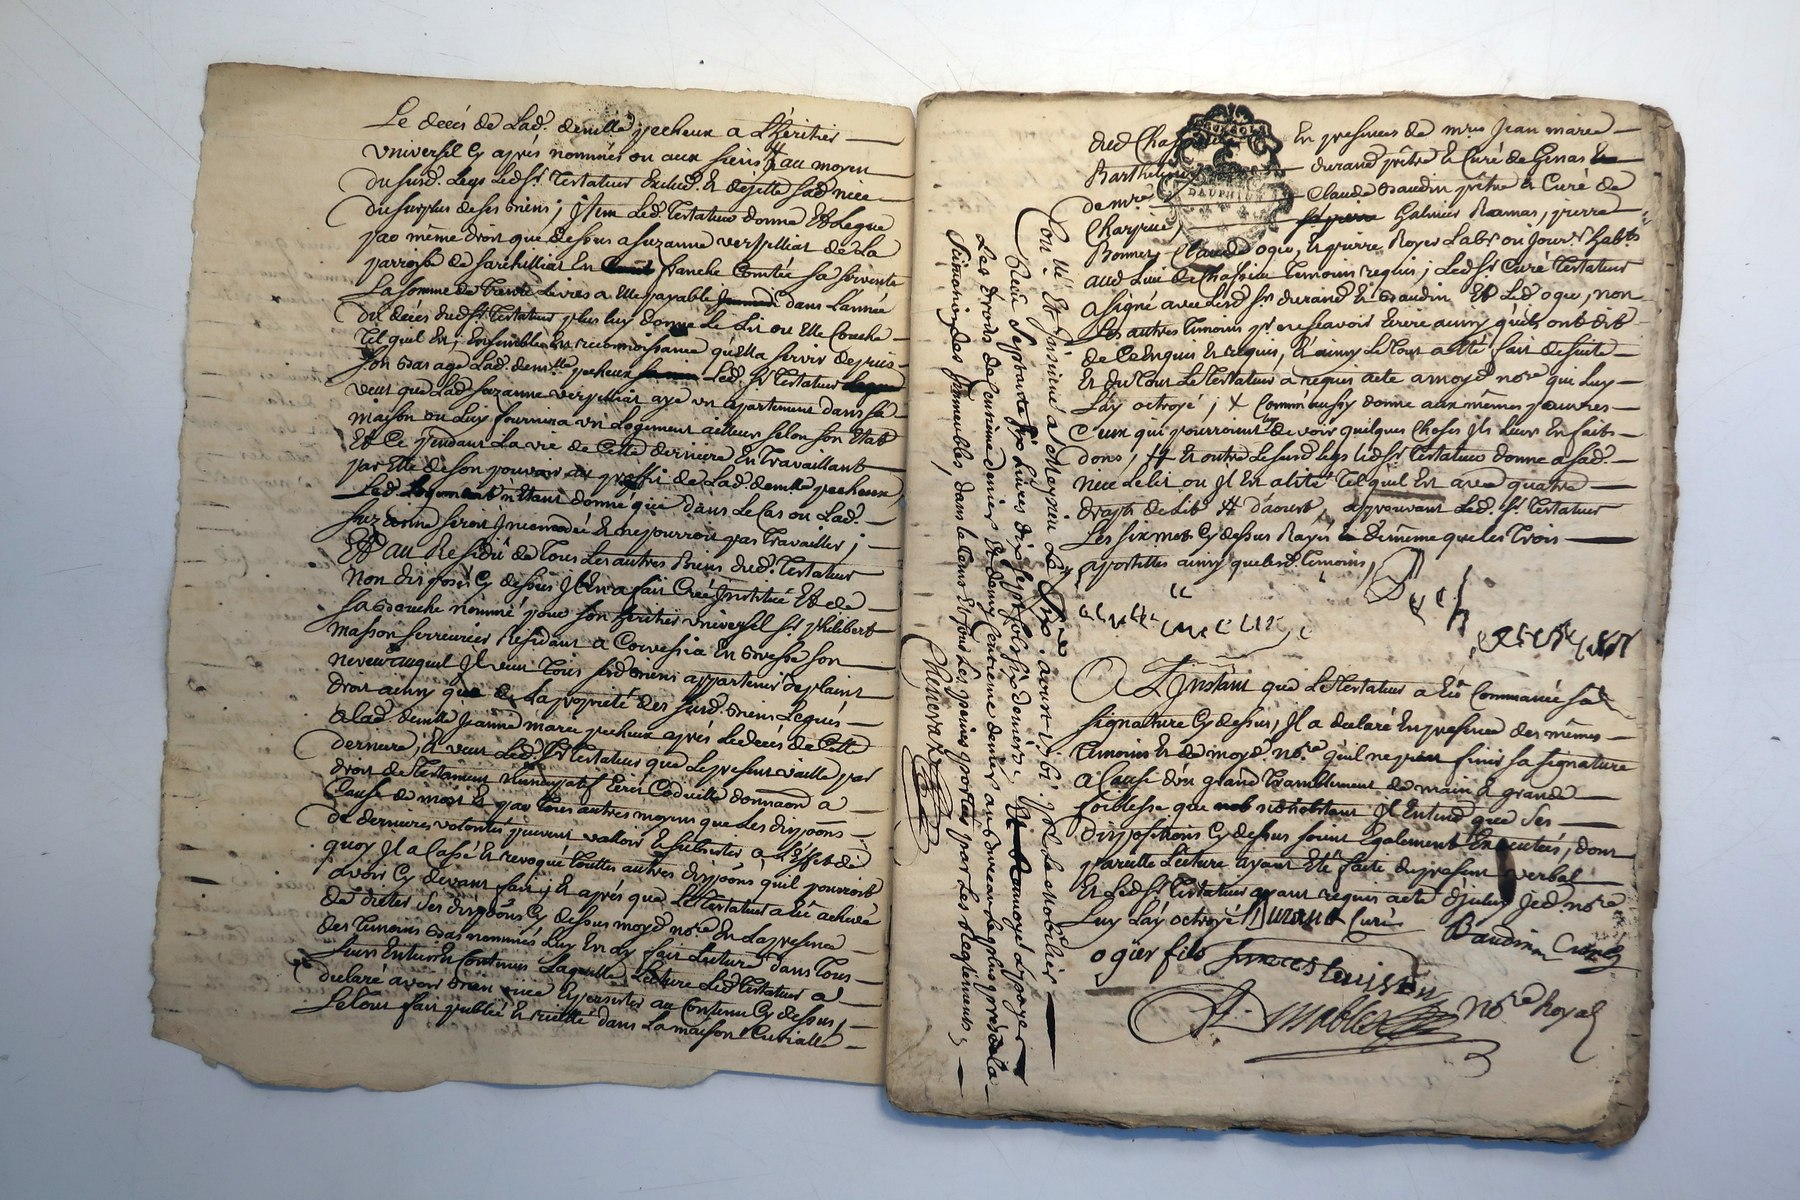 Le decés de Lad.^e demlle pecheux a L'héritier
Universel Cy aprés nommés ou aux siens # au moyen
du susd. Legs Led.^t S.^r Testateur Exclud. Et dejette sad. niece
du surplus de ses biens; Jtem Led. Testateur donne Et Legue
par même droit que dessus a Suzanne verpilliat de La
parroisse de en franche Comtée sa servante
La somme de Trente Livres a Elle payable dans L'année
du décés dud. S.^r Testateur plus luy donne Le Lit ou Elle Couche
Tel quil Est, Ensemble En reconnoissance qu'Ella servir depuis
son bas age Lad. demlle pecheux Led. S.^r Testateur
veut que Lad. Suzanne verpilliat aye un apartement dans sa
maison ou Luy fournira un Logement ailleurs selon son Etat
Et Ce pendant La vie de Cette derniere En Travaillant
par Elle de son pouvoir au proffit de Lad. demlle pecheux
Led. Logement n'étant donné que dans Le Cas ou Lad.
Suzanne seroit Jncomodée Et ne pourroit pas Travailler;
Et au Residû de Tous Les autres Biens dud. Testateur
non disposés Cy dessus Jl En a fait Créé Jnstitué Et de
sa bouche nommé pour son heritier Universel S.^r philibert
masson serreurier Residant a En bresse son
neveu auquel Jl veut Tous sesd. biens appartenir de plaint
droit ainsy que La propriété des susd. biens Legués
a Lad. demlle Jeanne marie pecheux aprés Le decés de Cette
derniere; Et veut Led. S.^r Testateur que Le present vaille par
droit de Testament nuncupatif Ecrit Codicille donnaõn a
Cause de mort Et par Tous autres moyens que Les dispoõns
de dernieres volontés peuvent valloir Et subsister a L'éffet de
quoy Jl a Cassé Et revoqué Touttes autres dispoõns qu'il pourroit
avoir Cy devant fait; Et aprés que Le Testateur a Eu achevé
de dicter Ses dispoõns Cy dessus moyd. no.^re En La presence
des Temoins bas nommés Luy En ay fait Lecture dans Tous
Leurs Entiers Contenus Laquelle Lecture Led. Testateur a
declaré avoir bien ouie Et persister au Contenu Cy dessus,
Le tout fait publié Et recitté dans La maison Curialle
dud. Chassieu En presences de m.^res Jean marie
Barthelemy durand prêtre Et Curé de Genas
de m.^re Claude Baudin prêtre Et Curé de
Charpieu Galmier Ramas, pierre
Bonnet, Claude ogier, Et pierre Royer Lab.^rs ou Jour.^rs habt.^s
aud. Lieu de Chassieu Temoins requis; Led. S.^r Curé Testateur
a signé avec Lesd. S.^rs durand Et Baudin Et Led. ogier, non
Les autres Temoins p.^r ne sçavoir Ecrire ainsy qu'ils ont dit
de Ce Enquis Et requis, Et ainsy Le tout a Eté fait de suite
Et du tout Le Testateur a requis acte a moyd. no.^re qui Luy
L'ay octroyé; X Comm'aussy donne aux mêmes pauvres
Ceux qui pourroient luy devoir quelques Choses Jl Leur En fait
dons; # Et outre Le susd. legs led. S.^r Testateur donne a sad.
niece Le Lit ou Jl En alité Tel quil Est avec quatre
draps de Lit, approuvant Led. S.^r Testateur
Les six mots Cy dessus Rayés de même que Les Trois
apostilles ainsy que Lesd. Temoins,
A L'Jnstant que Le Testateur a Eû Commancé sa
signature Cy dessus, Jl a declaré En presence des mêmes
Temoins Et de moyd. no.^re qu'il ne peut finir sa signature
a Cause d'un grand Tramblement de main Et grande
foiblesse que nobstant Jl Entend que Ses
dispositions Cy dessus soient Egalement Executées, dont
pareille Lecture ayant Eté faite du present verbal
Et Led. S.^r Testateur ayant requis acte d'jceluy Jed. no.^re
Luy L'ay octroyé Durand Curé Baudin Curé
ogier fils
no.^re Royal
Con.^lé Et Jnsinué a Meyzieu Le aoust 1761. p.^r Le Mobilier
Receu Septante six Livres dix sept sols six deniers; Et Renvoyé a payer
Les droits de Centiême denier Et demy Centieme denier au bureau Le plus prés de La
situation des Jmmeubles, dans Le tans Et sous Les peines portées par Les Reglements;